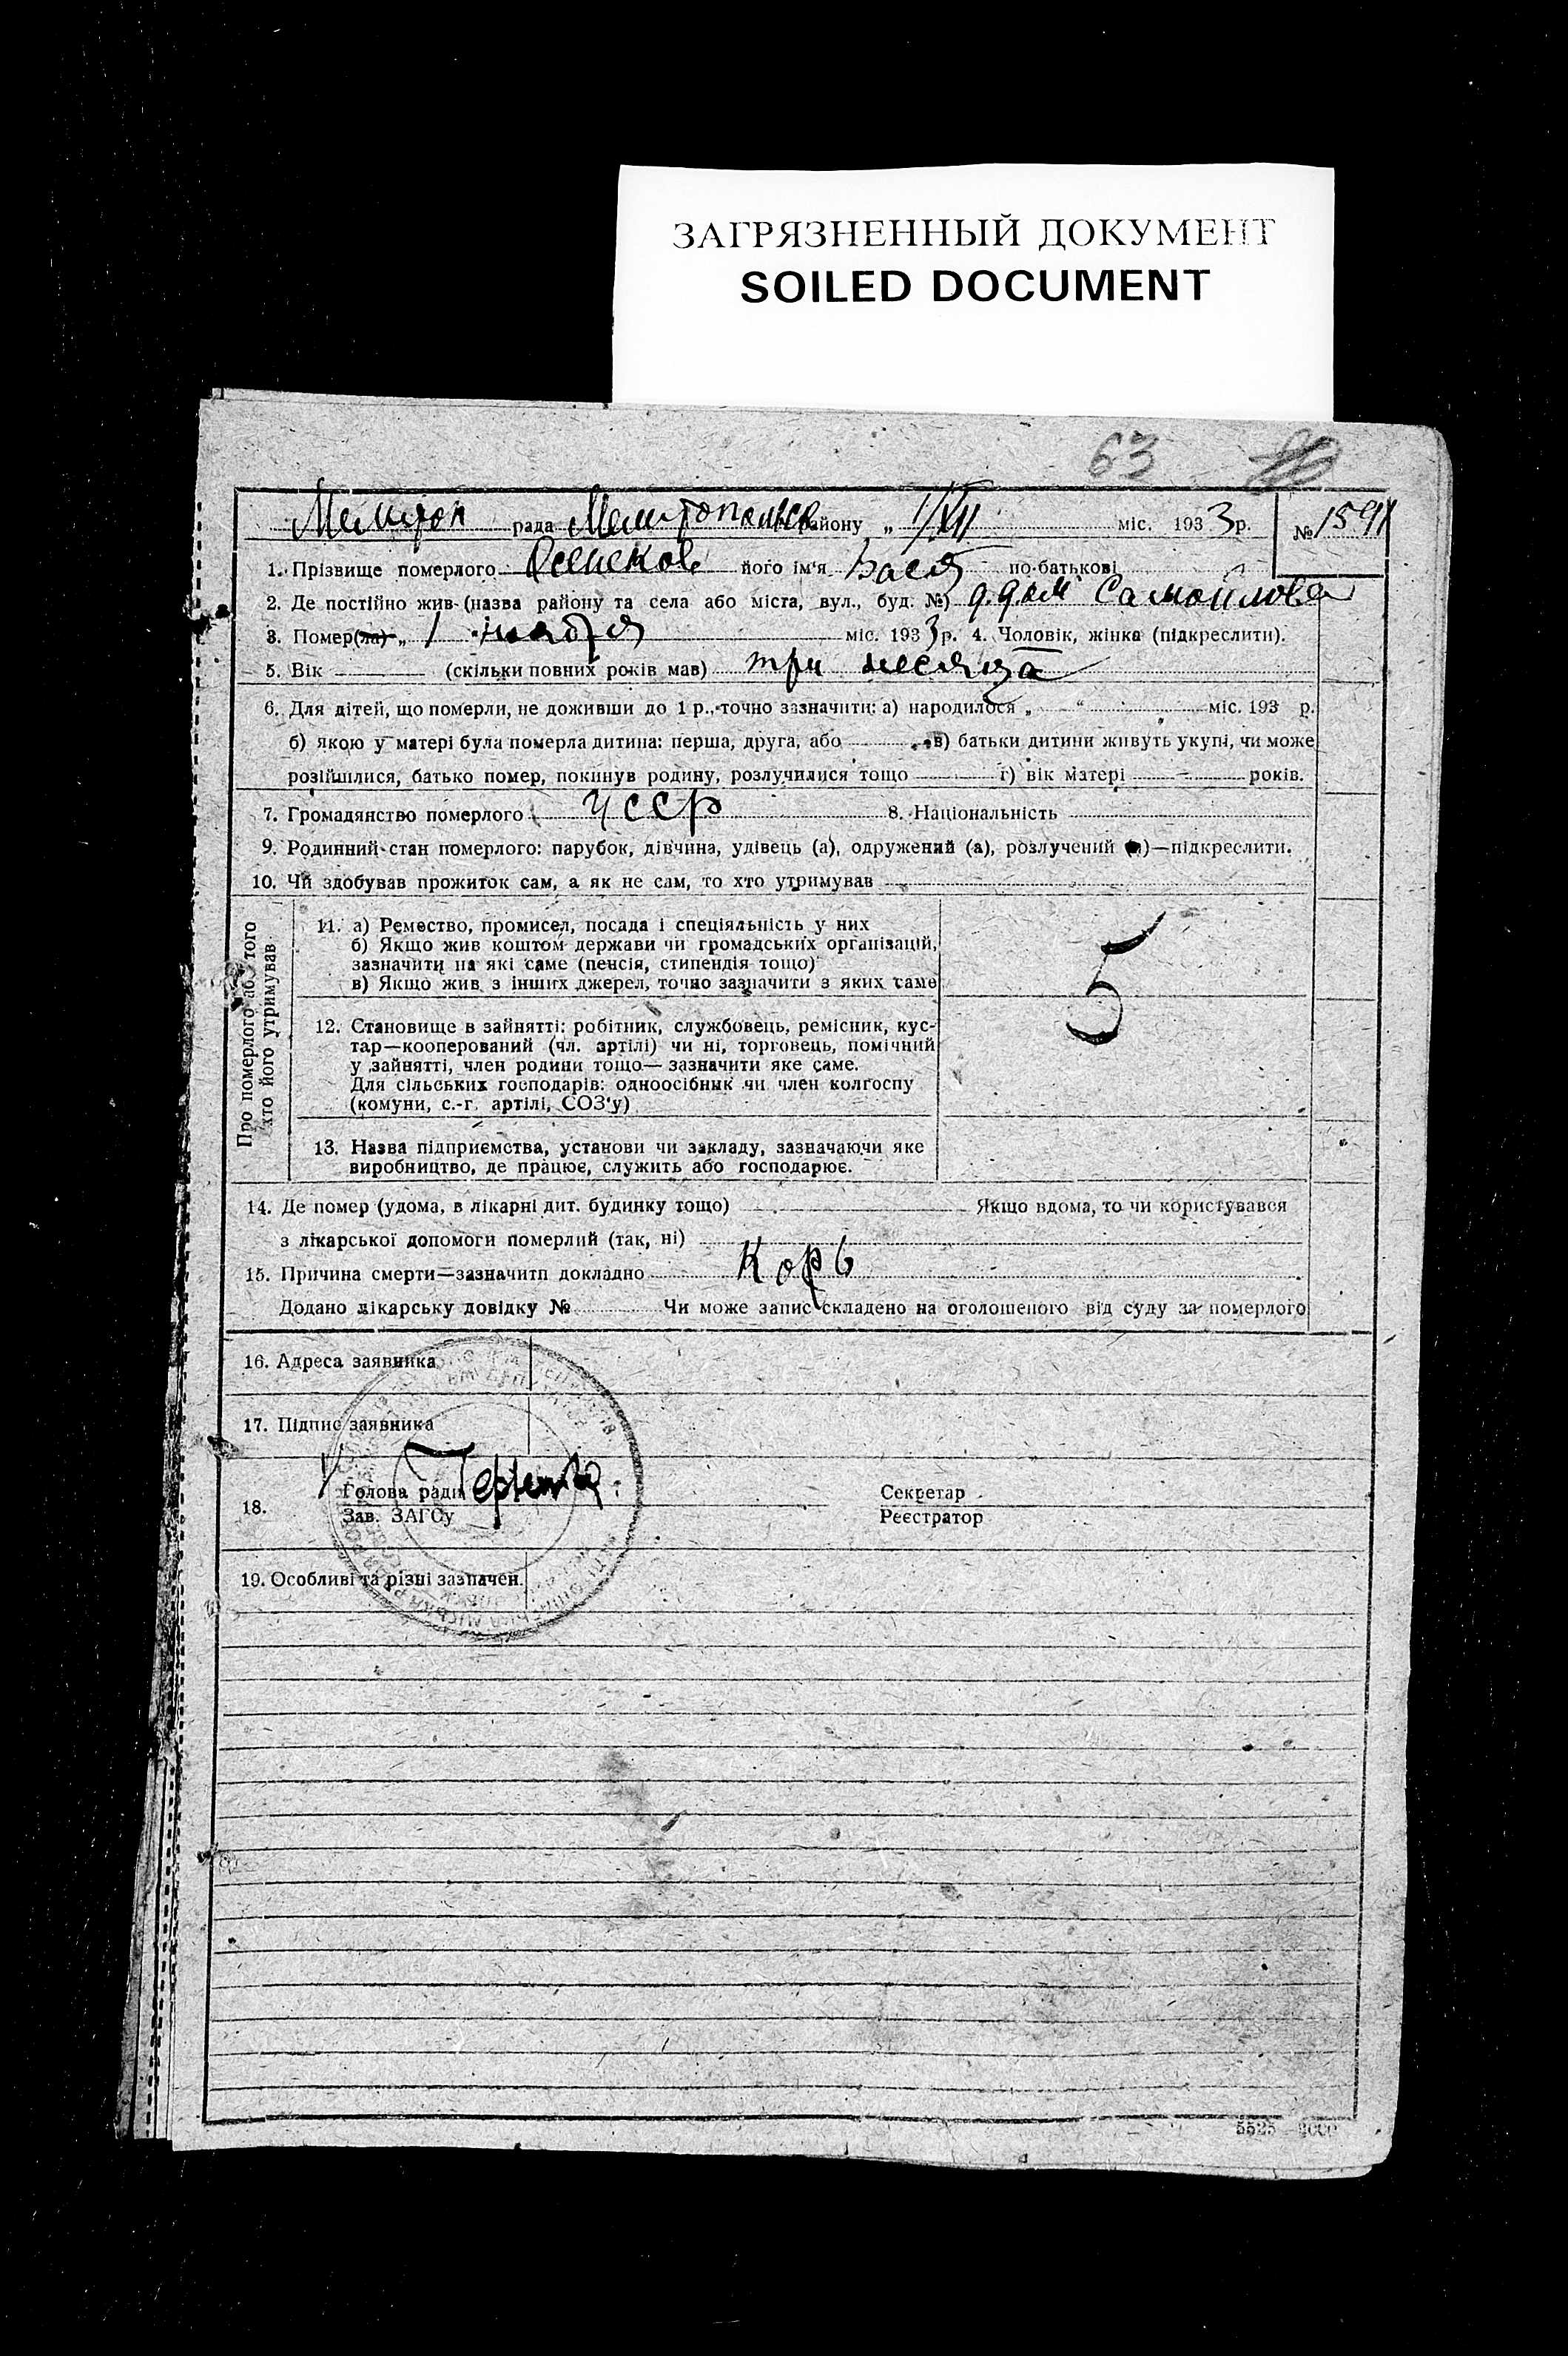 ЗАГРЯЗНЕННЫЙ ДОКУМЕНТ
SOILED DOCUMENT
63
рада району „ 1/XII міс. 1933 р. №
1. Прізвище померлого його ім'я Вася по-батькові
2. Де постійно жив (назва району та села або міста, вул., буд. №) д.дом Самойлова
3. Помер(ла) „ 1 міс. 1933 р. 4. Чоловік, жінка (підкреслити).
5. Вік (скільки повних років мав) три месяца
6. Для дітей, що померли, не доживши до 1 р., точно зазначити: а) народилося „ “ міс. 193 р.
б) якою у матері була померла дитина: перша, друга, або в) батьки дитини живуть укупі, чи може
розійшлися, батько помер, покинув родину, розлучилися тощо г) вік матері років.
7. Громадянство померлого УССР 8. Національність
9. Родинний стан померлого: парубок, дівчина, удівець (а), одружений (а), розлучений (а)—підкреслити.
10. Чи здобував прожиток сам, а як не сам, то хто утримував
Про померлого або того
хто його утримував
11. а) Ремество, промисел, посада і спеціяльність у них
б) Якщо жив коштом держави чи громадських організацій,
зазначити на які саме (пенсія, стипендія тощо)
в) Якщо жив з інших джерел, точно зазначити з яких саме
5
12. Становище в зайнятті: робітник, службовець, ремісник, кус-
тар—кооперований (чл. артілі) чи ні, торговець, помічний
у зайнятті, член родини тощо— зазначити яке саме.
Для сільських господарів: одноосібник чи член колгоспу
(комуни, с.-г. артілі, СОЗ'у)
13. Назва підприємства, установи чи закладу, зазначаючи яке
виробництво, де працює, служить або господарює.
14. Де помер (удома, в лікарні дит. будинку тощо) Якщо вдома, то чи користувався
з лікарської допомоги померлий (так, ні)
15. Причина смерти—зазначити докладно Корь
Додано лікарську довідку № Чи може запис складено на оголошеного від суду за померлого
16. Адреса заявника
17. Підпис заявника
18. Голова ради Секретар
Зав. ЗАГСу Реєстратор
19. Особливі та різні зазначен.